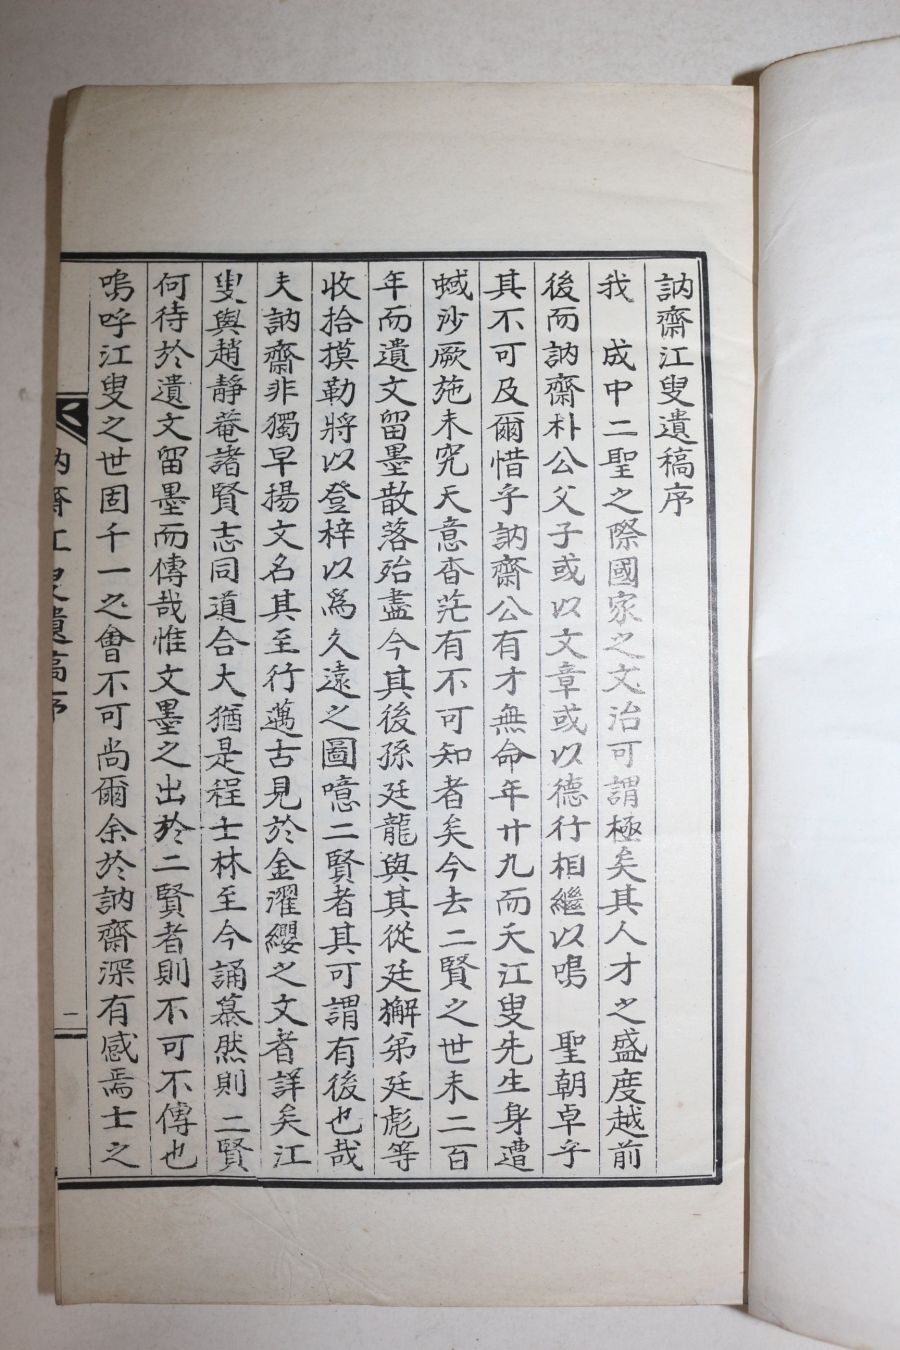 訥齋江叟遺稿序
我　成中二聖之際國家之文治可謂極矣其人才之盛度越前
後而訥齋朴公父子或以文章或以德行相繼以鳴　聖朝卓乎
其不可及爾惜乎訥齋公有才無命年廿九而夭江叟先生身遭
蜮沙厥施未究天意杳茫有不可知者矣今去二賢之世未二百
年而遺文留墨散落殆盡今其後孫廷龍與其從廷獬弟廷彪等
收拾摸勒將以登梓以爲久遠之圖噫二賢者其可謂有後也哉
夫訥齋非獨早揚文名其至行邁古見於金濯纓之文者詳矣江
叟與趙靜菴諸賢志同道合大猶是程士林至今誦慕然則二賢
何待於遺文留墨而傳哉惟文墨之出於二賢者則不可不傳也
嗚呼江叟之世固千一之會不可尚爾余於訥齋深有感焉士之
訥齋江叟遺稿序
一